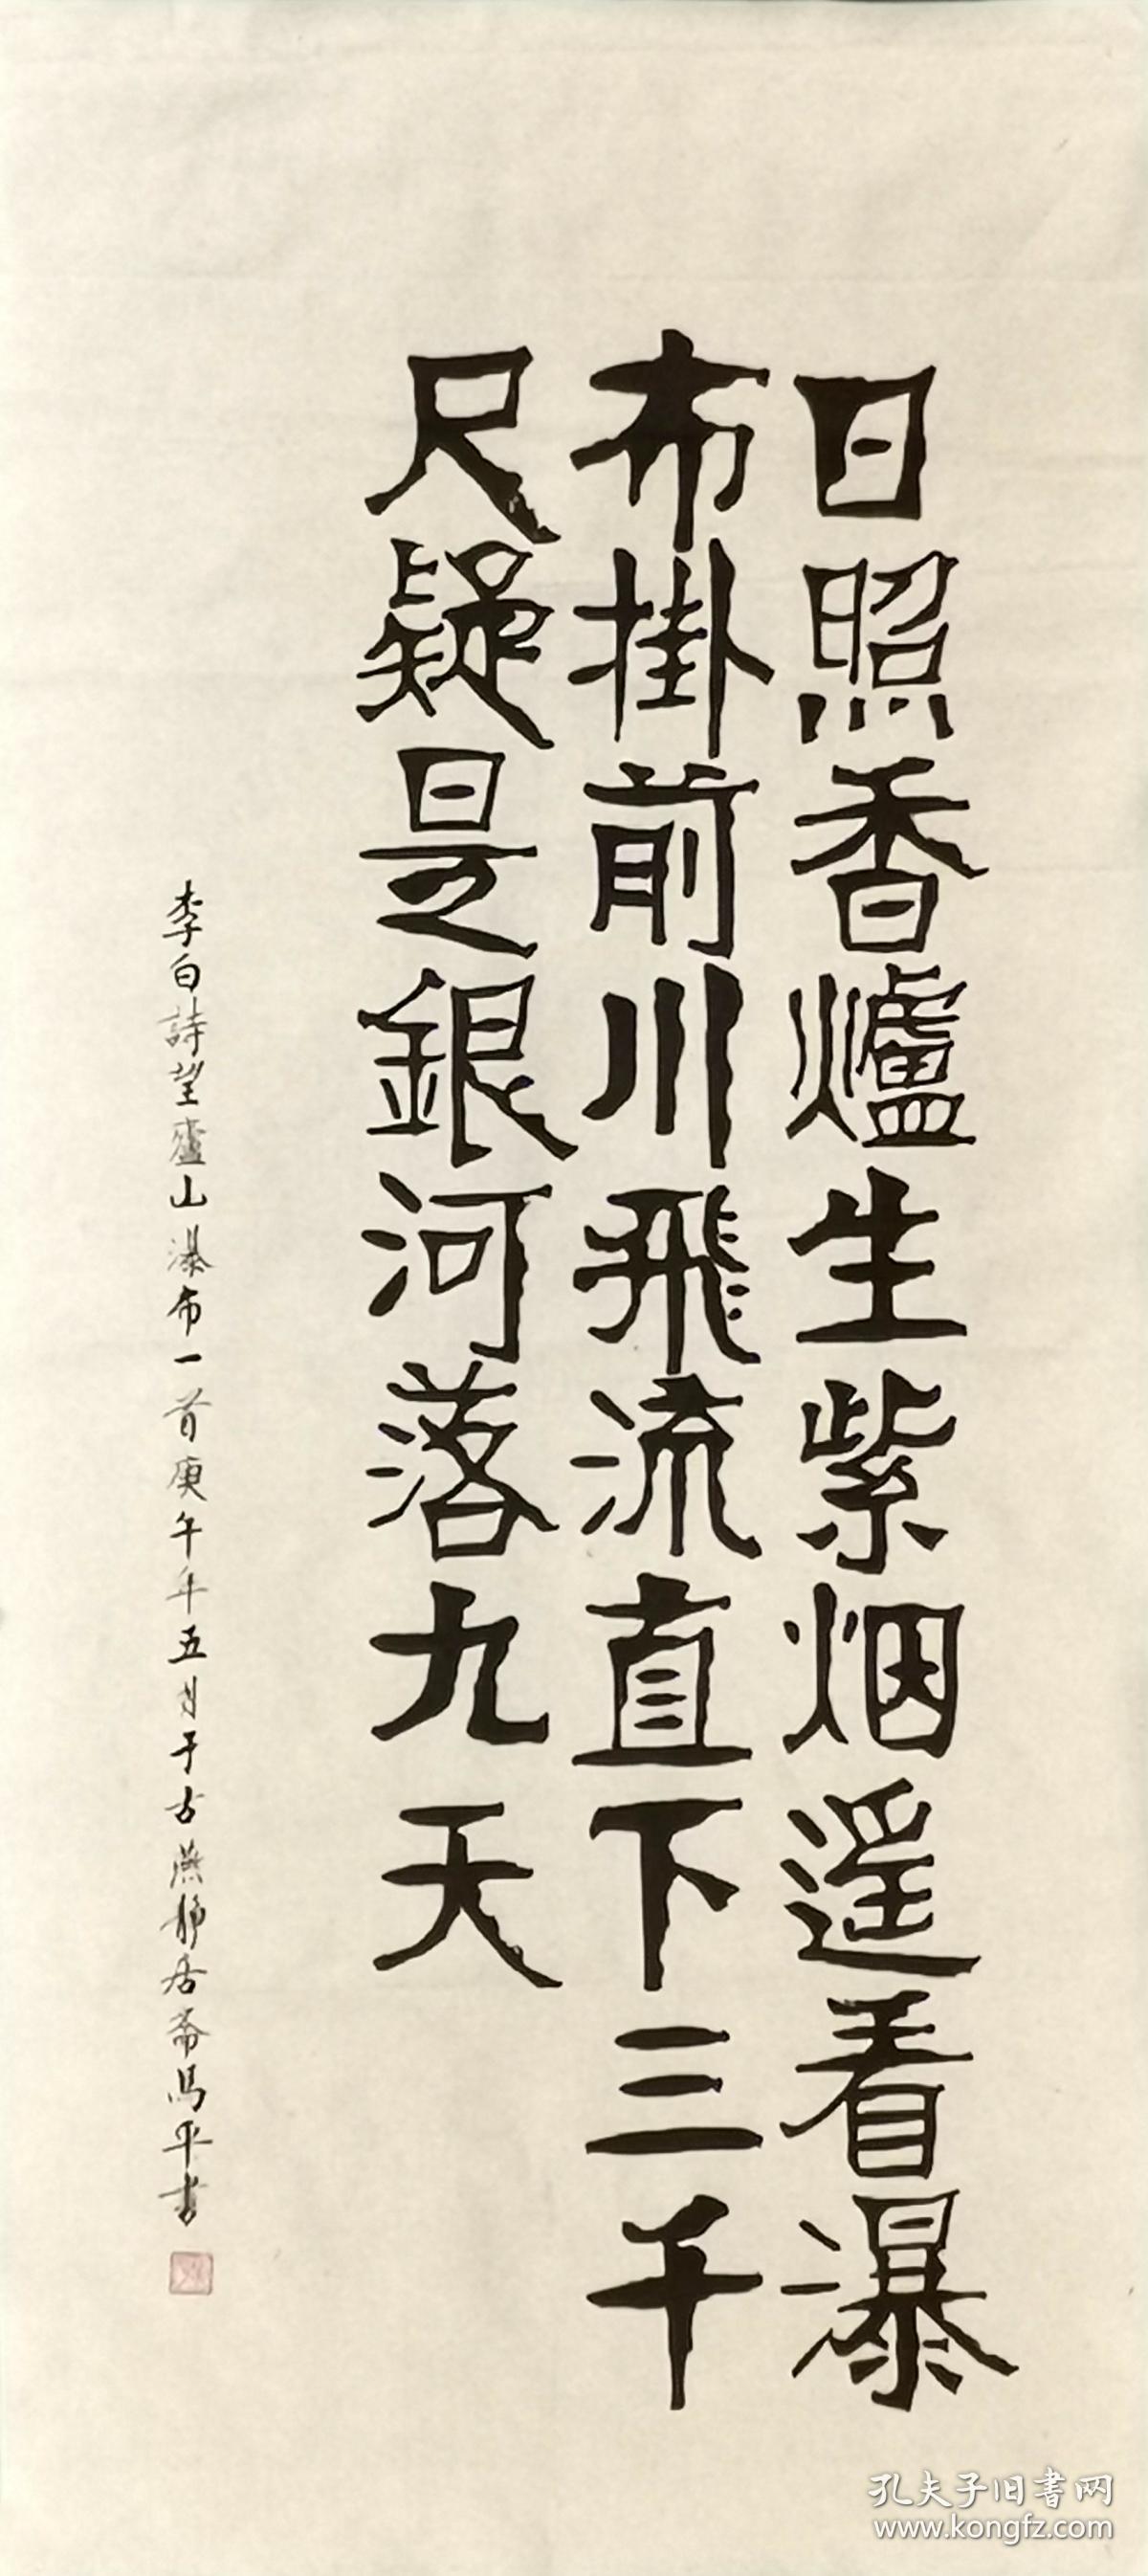 日照香爐生紫烟遥看瀑
布掛前川飛流直下三千
尺疑是銀河落九天
李白詩望廬山瀑布一首庚午年五月于古燕静居斋馬平書
孔夫子旧書网
www.kongfz.com